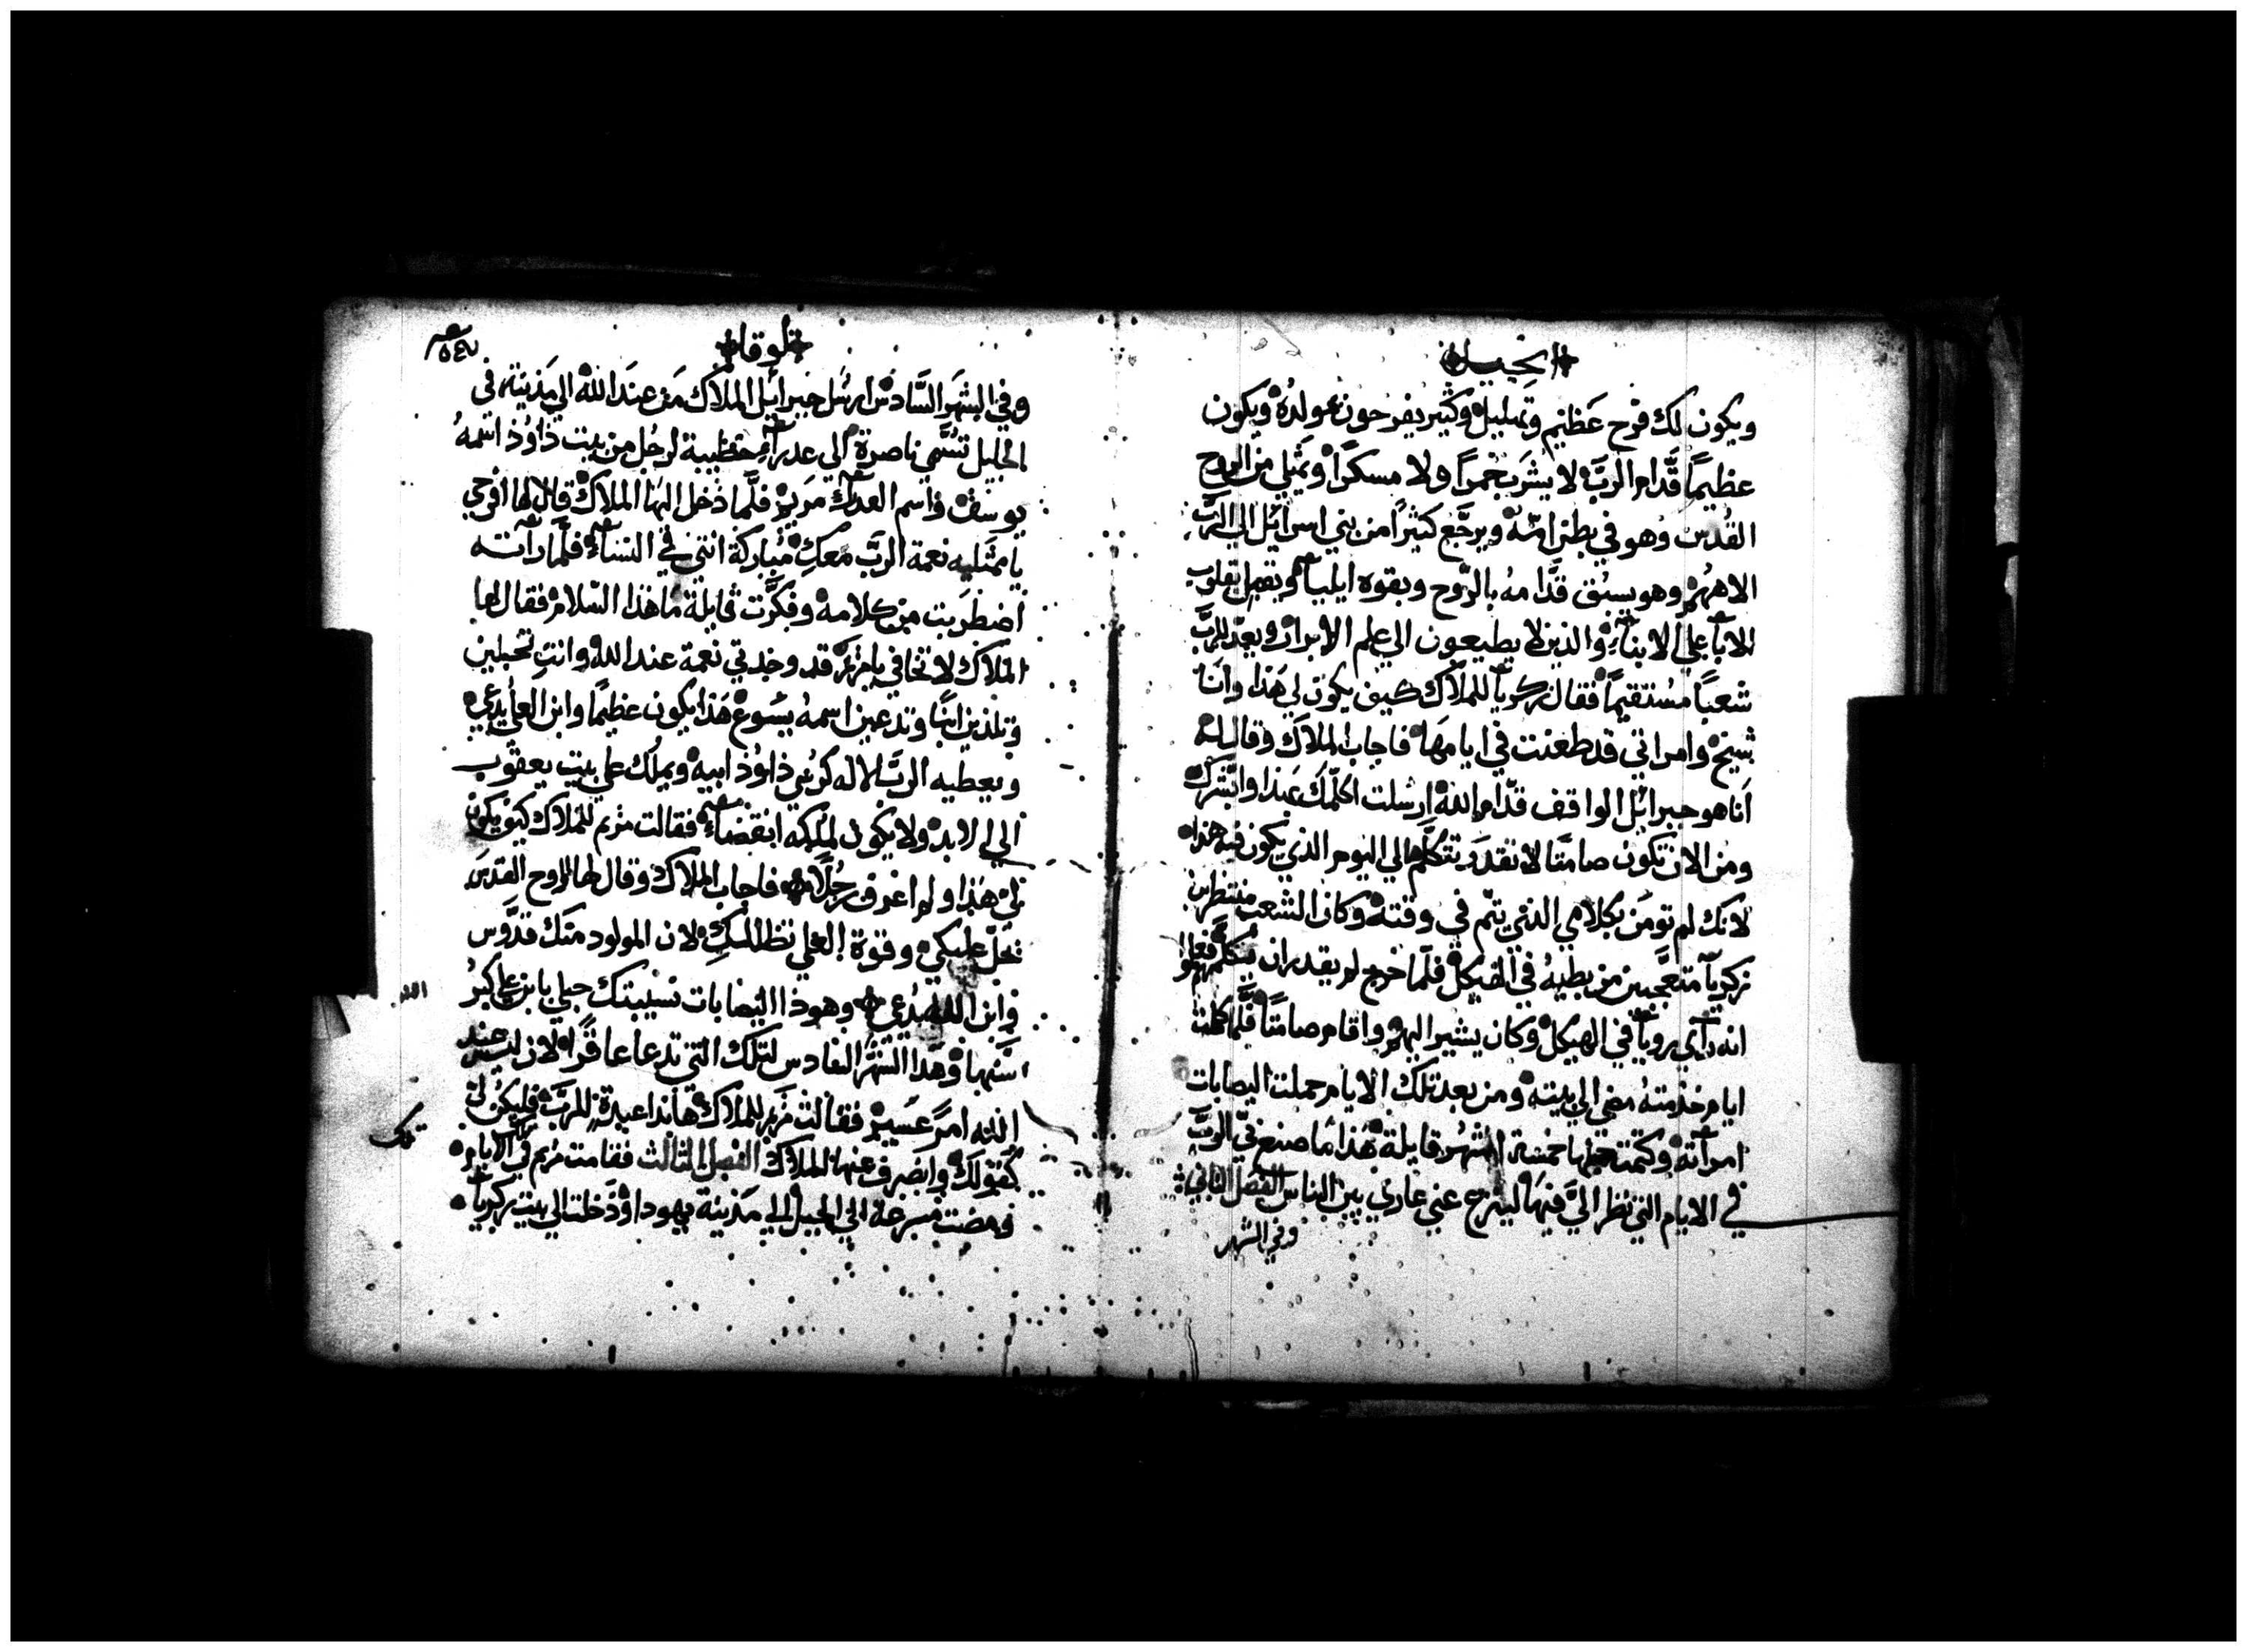 انجيل
ويكون لك فرح عظيم وتهليل وكثير يفرحون بمولده ويكون
عظيمًا قدّام الربّ لا يشرب خمرًا ولا مسكرًا ويمتلي من الروح
القدس وهو في بطن امّه ويرجّع كثيرًا من بني اسرائيل الي الربّ
الاههم وهو يسبق قدّامه بالرّوح وبقوه ايلياء ويقبل بقلوب
الاباء علي الابناء والذين لا يطيعون الي علم الابرار ويعدّ للربّ
شعبًا مستقيمًا فقال زكريا للملاك كيف يكون لي هذا وانا
شيخ وامراتي قد طعنت في ايامها فاجاب الملاك وقال له
انا هو جبرائيل الواقف قدّام الله ارسلت اكلّمك بهذا وابشّرك
ومن الان تكون صامتًا لا تقدر تتكلّم الي اليوم الذي يكون فيه هذا
لانك لم تومن بكلامي الذي يتم في وقته وكان الشعب منتظرين
زكريا متعجّبين من بطيه في الهيكل فلمّا خرج لم يقدر ان يكلّمهم فعلموا
انه راي رويا في الهيكل وكان يشير اليهم واقام صامتًا فلمّا كملت
ايام خدمته مضي الي بيته ومن بعد تلك الايام حملت اليصابات
امراته وكتمت حبلها خمسة اشهر قايلة هذا ما صنع بي الربّ
في الايام التي نظر اليّ فيها لينزع عني عاري بين الناس الفصل الثاني
وفي الشهر
لوقا
وفي الشهر السّادس ارسل جبرائيل الملاك من عند الله الي مدينة في
الجليل تسمّي ناصرة الي عدراء خطيبة لرجل من بيت داوود اسمه
يوسف واسم العدراء مريم فلمّا دخل اليها الملاك قال لها افرحي
يا ممتليه نعمة الربّ معكِ مباركة انتي في النساء فلمّا راته
اضطربت من كلامه وفكّرت قايلة ما هذا السّلام فقال لها
الملاك لا تخافي يا مريم قد وجدتي نعمة عند الله وانتِ تحبلين
وتلدين ابنًا وتدعين اسمه يسوع هذا يكون عظيمًا وابن العلي يدعي
ويعطيه الربّ الاله كرسي داوود ابيه ويملك علي بيت يعقوب
الي الابد ولا يكون لملكه انقضاء فقالت مريم للملاك كيف يكون
لي هذا ولم اعرف رجلًا فاجاب الملاك وقال لها الروح القدس
يحلّ عليكي وقوة العلي تظللكِ لان المولود منك قدّوس
وابن الله يدعي وهوذا اليصابات نسيبتك حبلي بابن علي كبر
سنها وهذا الشهر السادس لتلك التي تدعا عاقرًا لان ليس عند
الله امرً عسير فقالت مريم للملاك هانذا عبدة للربّ فليكن لي
كقولك وانصرف عنها الملاك الفصل الثالث فقامت مريم في تلك الايام
ومضت مسرعة الي الجبل الي مدينة يهودا ودخلت الي بيت زكريا